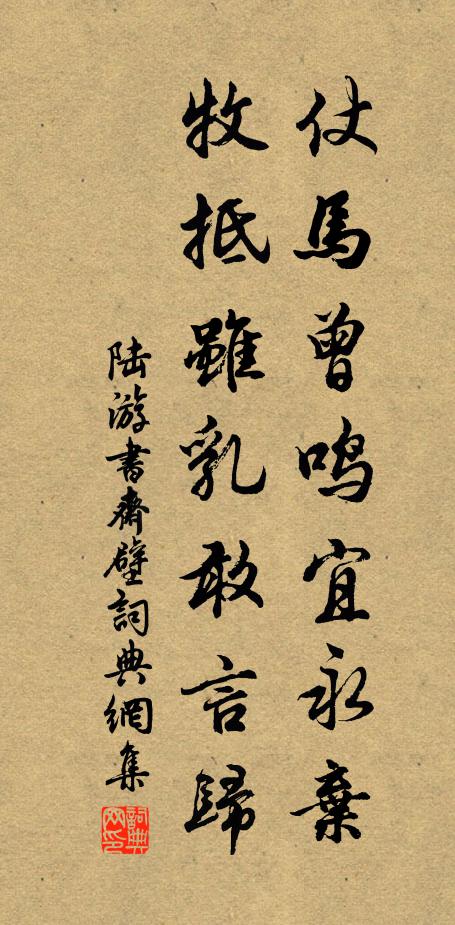 仗馬曾鳴宜永棄
牧抵雖乳敢言歸
陆游書齋壁詞典網集
詞典网印